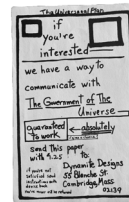 The Universal Plan
if
you're
interested
we have a way to
communicate with
The Government of The
Universe
guaranteed
to work
absolutely
send this paper
with 4.25
Dynamite Designs
53 Blanche St.
Cambridge, Mass
02139
if you're not
satisfied send